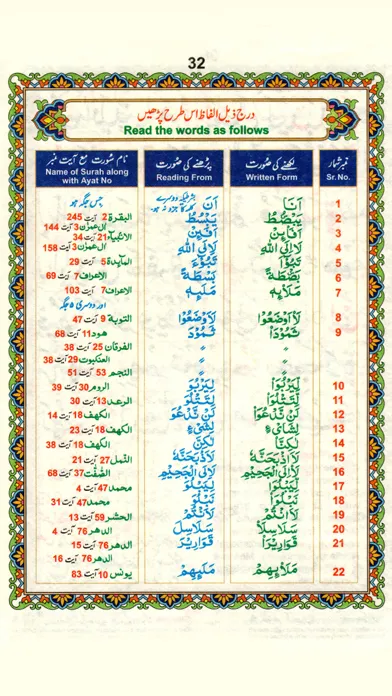 32
درج ذیل الفاظ اس طرح پڑھیں
Read the words as follows
نمبر شمار لکھنے کی صورت پڑھنے کی صورت نام سورت مع آیت نمبر
Sr. No. Written Form Reading From Name of Surah along with Ayat No
1 اَنَا اَنَ جس جگہ ہو
2 يَبْصُۜطُ يَبْسُطُ البقرة 2 آیت 245
3 اَفَا۟ئِنْ اَفَئِنْ آل عمران 3 آیت 144
الانبیاء 21 آیت 34
4 لَاۡاِلَى اللهِ لَاِلَى اللهِ آل عمران 3 آیت 158
5 تَبُوْٓءَا تَبُوْٓءَ المآئدة 5 آیت 29
6 بَصْۜطَةً بَسْطَةً الاعراف 7 آیت 69
7 مَلَا۟ئِهٖ مَلَئِهٖ الاعراف 7 آیت 103
8 لَا۟اَوْضَعُوْا لَاَوْضَعُوْا التوبة 9 آیت 47
9 ثَمُوْدَا۟ ثَمُوْدَ هود 11 آیت 68
〃 〃 الفرقان 25 آیت 38
〃 〃 العنكبوت 29 آیت 38
〃 〃 النجم 53 آیت 51
10 لِيَرْبُوَا۟ لِيَرْبُوَ الروم 30 آیت 39
11 لِتَتْلُوَا۟ لِتَتْلُوَ الرعد 13 آیت 30
12 لَنْ نَّدْعُوَا۟ لَنْ نَّدْعُوَ الكهف 18 آیت 14
13 لِشَا۟ىْءٍ لِشَىْءٍ الكهف 18 آیت 23
14 لٰكِنَّا۟ لٰكِنَّ الكهف 18 آیت 38
15 لَا۟اَذْبَحَنَّهٗ لَاَذْبَحَنَّهٗ النمل 27 آیت 21
16 لَا۟اِلَى الْجَحِيْمِ لَاِلَى الْجَحِيْمِ الصّٰفّٰت 37 آیت 68
17 لِيَبْلُوَا۟ لِيَبْلُوَ محمد 47 آیت 4
18 نَبْلُوَا۟ نَبْلُوَ محمد 47 آیت 31
19 لَا۟اَنْتُمْ لَاَنْتُمْ الحشر 59 آیت 13
20 سَلٰسِلَا۟ سَلٰسِلَ الدهر 76 آیت 4
21 قَوَارِيْرَا۟ قَوَارِيْرَ الدهر 76 آیت 15
الدهر 76 آیت 16
22 مَلَا۟ئِهِمْ مَلَئِهِمْ یونس 10 آیت 83